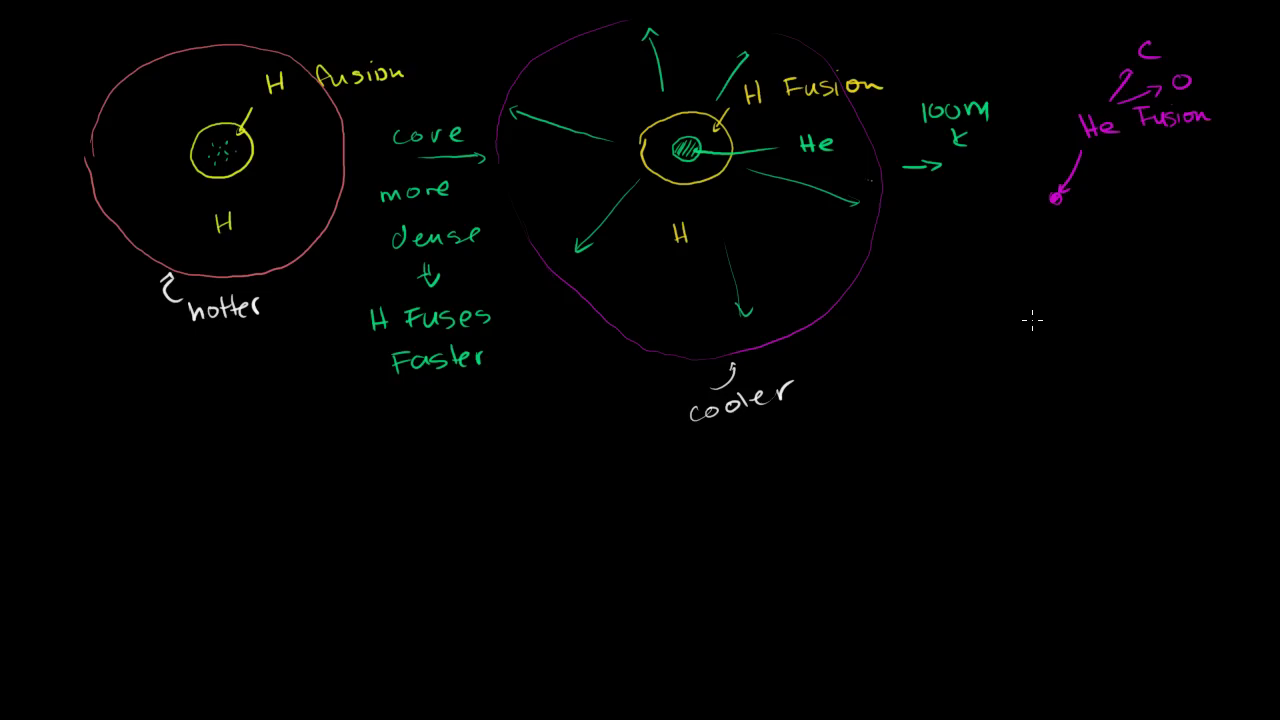 H fusion
H
hotter
core
more
dense
H Fuses
Faster
H Fusion
He
H
cooler
100M
K
C
O
He Fusion